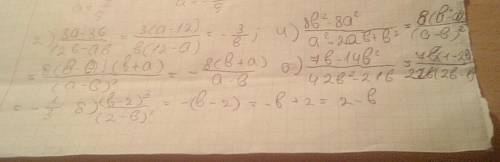 2) (3a-36)/(12b-ab) = 3(a-12)/b(12-a) = -3/b; 4) (8b²-8a²)/(a²-2ab+b²) = 8(b²-a²)/(a-b)²
= 8(b-a)(b+a)/(a-b)² = -8(b+a)/(a-b) (7b-14b²)/(42b²-21b) = 7b(1-2b)/21b(2b-1)
= -1/3 б) (b-2)²/(2-b)¹ = -(b-2) = -b+2 = 2-b